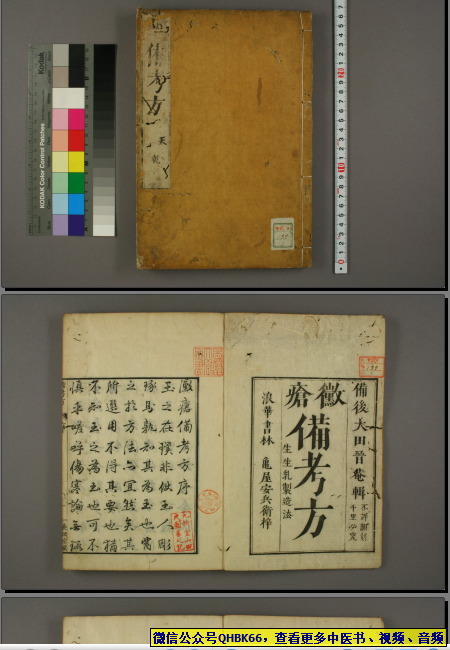 Kodak
KODAK Color Control Patches
備考方
天
乾
備後大田晉菴輯
不許翻刻
千里必究
黴瘡
備考方
生生乳製造法
浪華書林 龜屋安兵衛梓
黴瘡備考方序
玉之在璞非他玉人彫
琢焉孰知其為玉也嘗
之於方法亦宜然矣其
所選用不得其要也猶
不知玉之為玉也可不
慎乎嗟呼傷寒論
微信公众号QHBK66，查看更多中医书、视频、音频